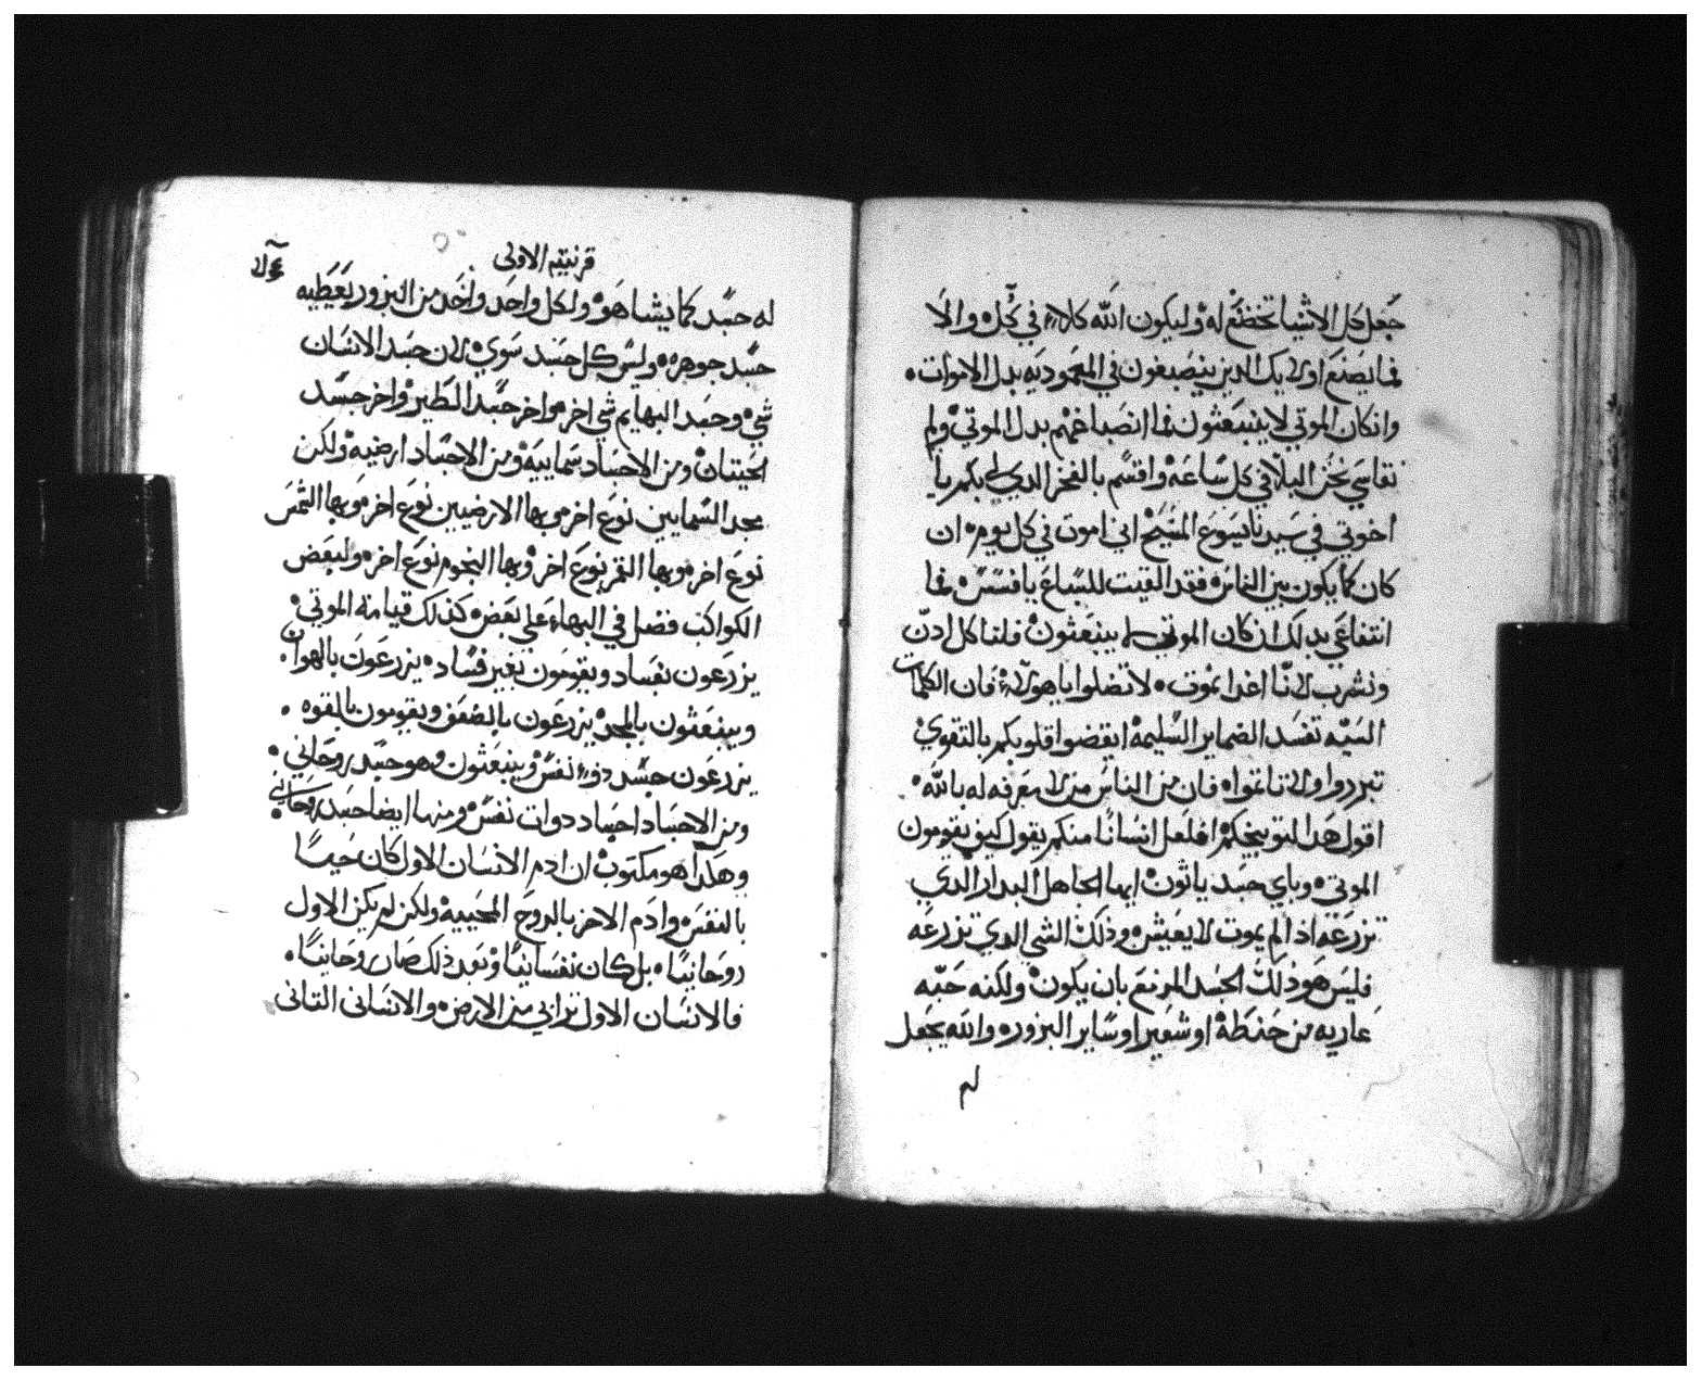 جعل كل الاشيا تخضع له وليكون الله كلا في كل والا
فما يصنع اوليك الدين ينصبغون في المعموديه بدل الاموات
وانكان الموتي لا ينبعثون فما انصباغهم بدل الموتي ولم
نقاسي نحن البلا في كل ساعه واقسم بالفخر الدي لي بكم يا
اخوتي في سيدنا يسوع المسيح اني اموت في كل يوم ان
كان كما يكون بين الناس فقد القيت للسباع بافسس فما
انتفاعي بدلك ان كان الموتي لا ينبعثون فلناكل ادن
ونشرب لاننا غدا نموت لا تضلوا يا هولاء فان الكلمات
السيه تفسد الضماير السليمه ايقضوا قلوبكم بالتقوي
تبرروا ولا تاتموا فان من الناس من لا معرفه له بالله
اقول هدا لتوبيخكم افلعل انسانا منكم يقول كيف يقومون
الموتي وباي جسد ياتون ايها الجاهل البدار الدي
تزرعه اذا لم يموت لا يعيش وذلك الشي الدي تزرعه
فليس هو ذلك الجسد المزمع بان يكون ولكنه حبه
عاريه من حنطة او شعير او ساير البزور والله يجعل
له
قرنتيه الاولى
له جسد كما يشا هو ولكل واحد واحد من البزور يعطيه
جسد جوهره وليس كل جسد سوي لان جسد الانسان
شي وجسد البهايم شي اخر واخر جسد الطير واخر جسد
الحيتان ومن الاجساد سماييه ومن الاجساد ارضيه ولكن
مجد السمايين نوع اخر وبها الارضيين نوع اخر وبها الشمس
نوع اخر وبها القمر نوع اخر وبها النجوم نوع اخر ولبعض
الكواكب فضل في البهاء علي بعض كذلك قيامة الموتي
يزرعون بفساد ويقومون بغير فساد يزرعون بالهوان
وينبعثون بالمجد يزرعون بالضعف ويقومون بالقوه
يزرعون جسد نفس وينبعثون وهو جسد روحاني
ومن الاجساد اجساد دوات نفس ومنها ايضا جسد روحاني
وهكدا هو مكتوب ان ادم الانسان الاول كان حيا
بالنفس وادم الاخر بالروح المحييه ولكن لم يكن الاول
روحانيا بل كان نفسانيا وبعد ذلك صار روحانيا
فالانسان الاول ترابي من الارض والانسانى التانى